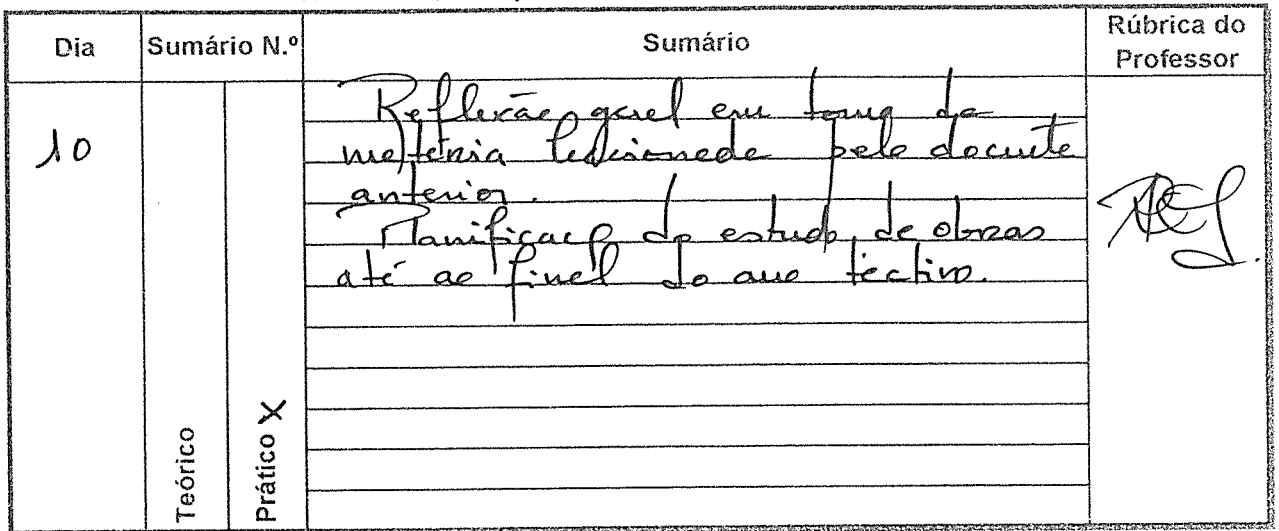 Dia Sumário N.º Sumário Rúbrica do Professor
10
Reflexão geral em torno da
matéria leccionada pelo docente
anterior.
Planificação do estudo de obras
até ao final do ano lectivo.
Teórico
Prático X